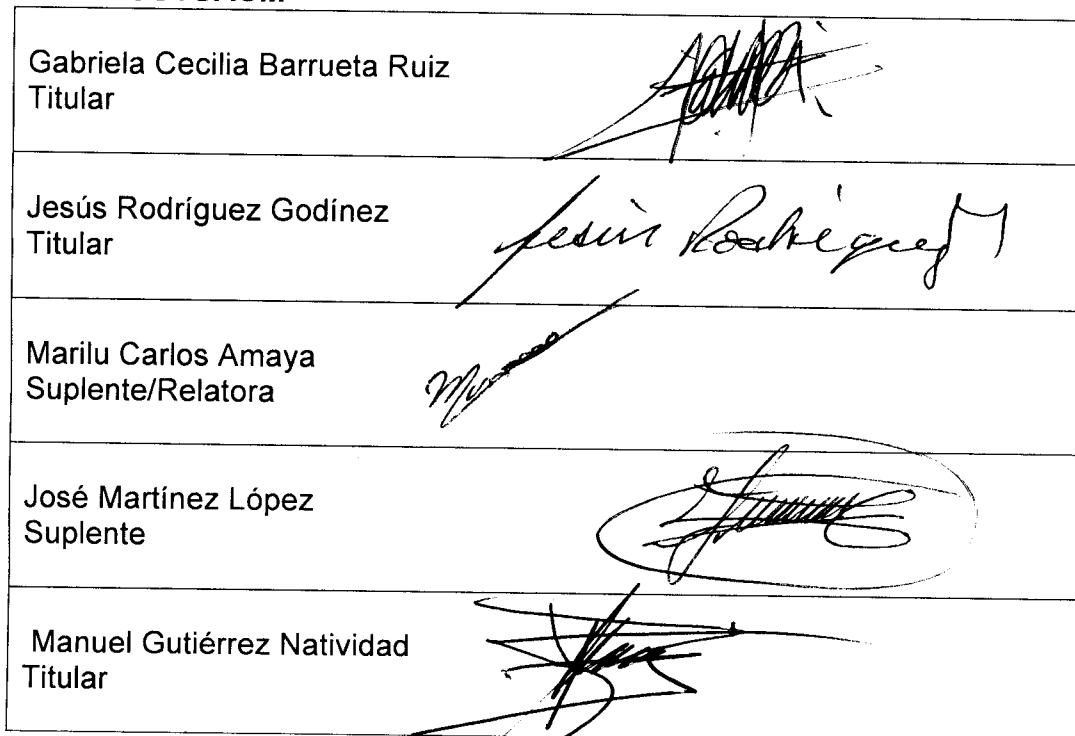 Gabriela Cecilia Barrueta Ruiz
Titular
Jesús Rodríguez Godínez
Titular
Jesús Rodríguez
Marilu Carlos Amaya
Suplente/Relatora
José Martínez López
Suplente
Manuel Gutiérrez Natividad
Titular